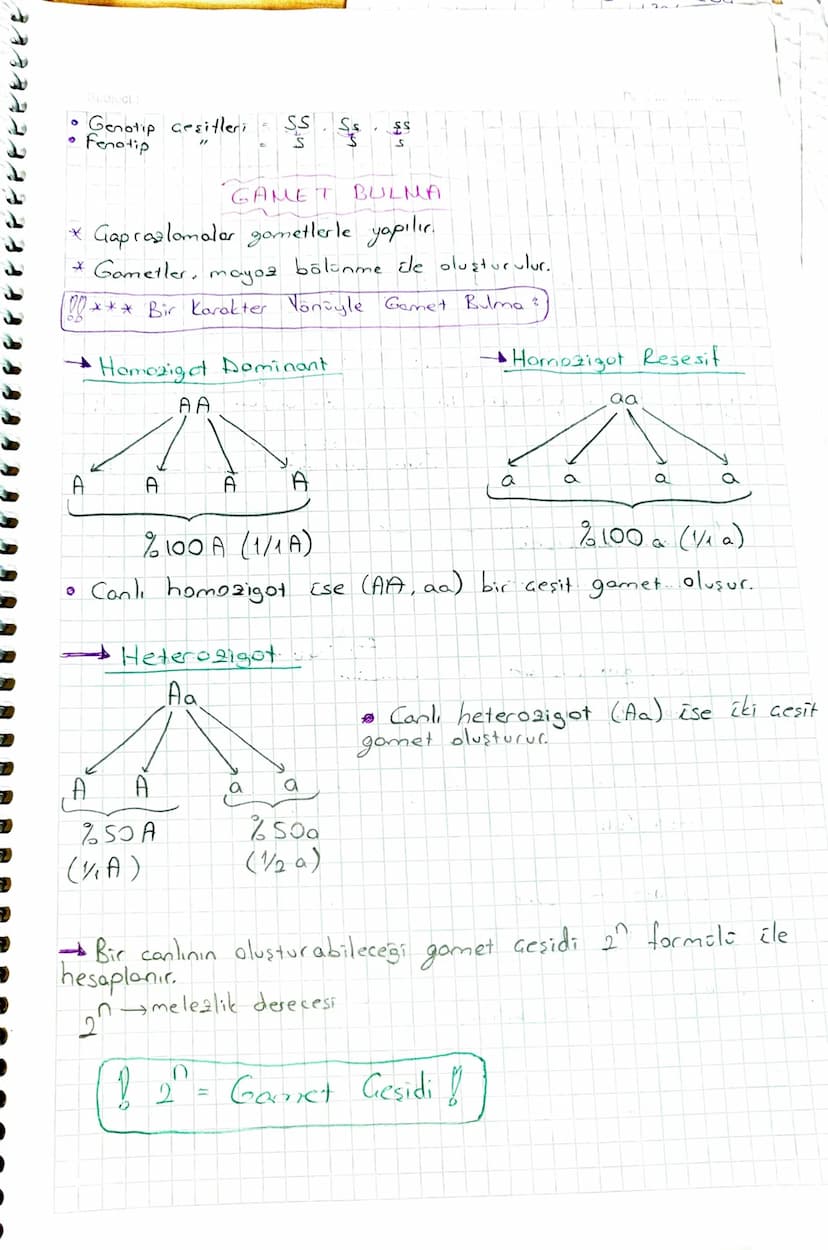 • Genotip çeşitleri = SS . Ss . ss
• Fenotip " = S S s
GAMET BULMA
* Çaprazlamalar gametlerle yapılır.
* Gametler, mayoz bölünme ile oluşturulur.
!!*** Bir Karakter Yönüyle Gamet Bulma?
→ Homozigot Dominant
→ Homozigot Resesif
AA
aa
A A A A
a a a a
%100 A (1/1 A)
%100 a (1/1 a)
• Canlı homozigot ise (AA, aa) bir çeşit gamet oluşur.
→ Heterozigot
Aa
• Canlı heterozigot (Aa) ise iki çeşit
gamet oluşturur.
A A a a
%50 A %50a
(1/1 A) (1/2 a)
→ Bir canlının oluşturabileceği gamet çeşidi 2ⁿ formülü ile
hesaplanır.
2ⁿ → melezlik derecesi
! 2ⁿ = Gamet Çeşidi !